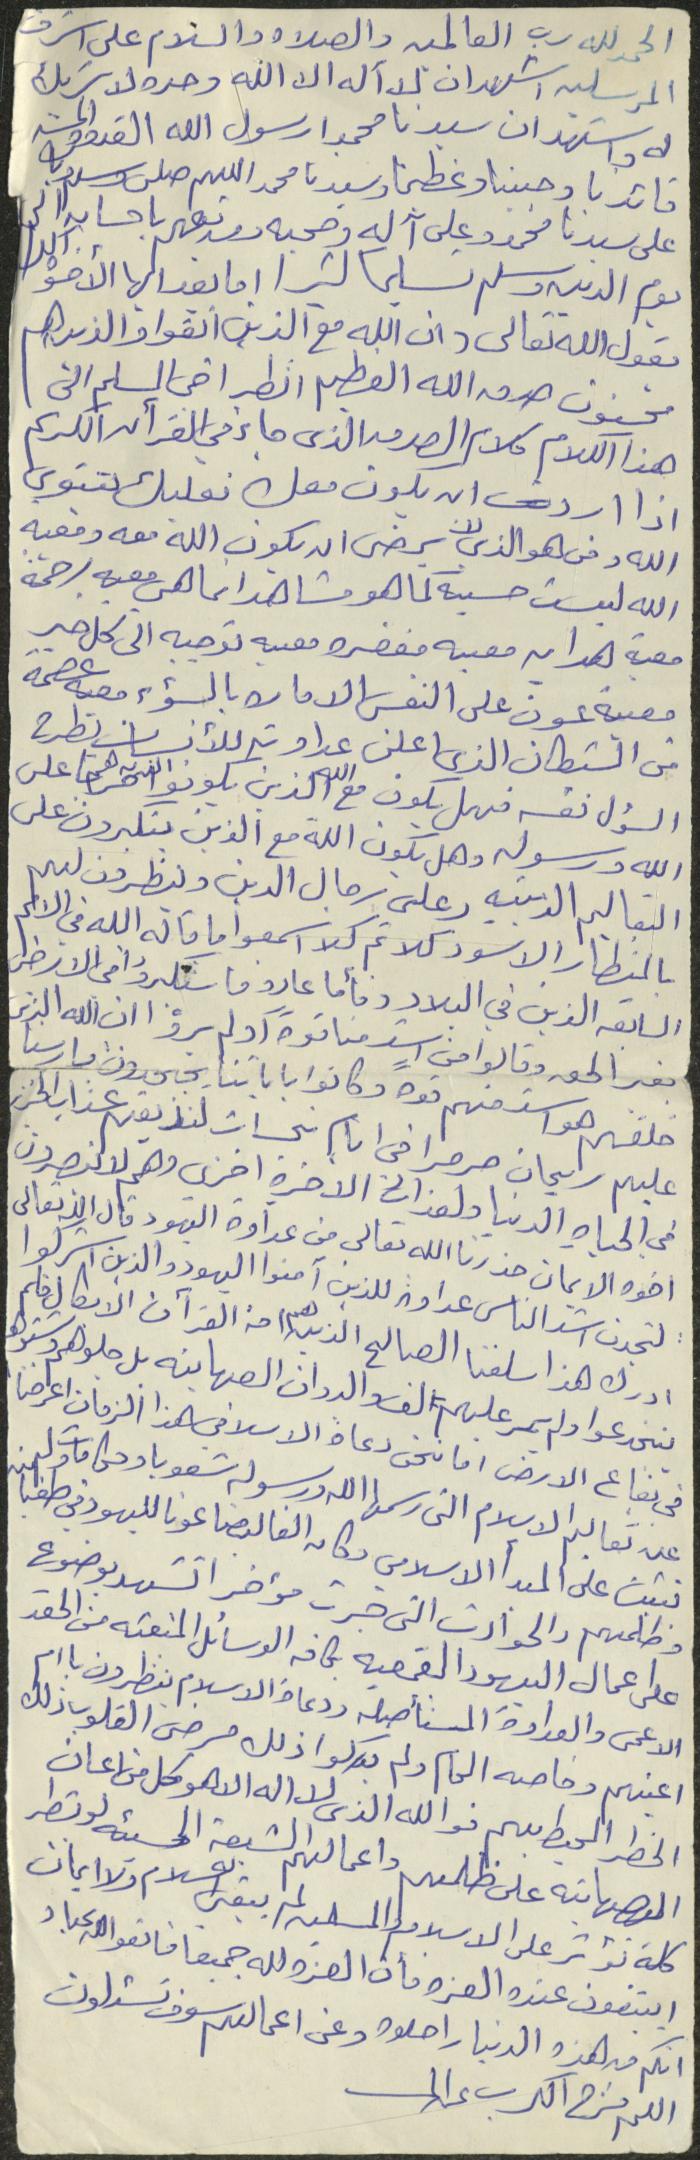 الحمد لله رب العالمين والصلاه والسلام على اشرف
المرسلين اشهد ان لا أله الا الله وحده لا شريك
له واشهد ان سيدنا محمدا رسول الله
قائدنا وحبيبنا وعظيمنا وسيدنا محمد اللهم صلى وسلم
على سيدنا محمد وعلى آله وصحبه ومن تبعهم باحسان الى
يوم الدين وسلم تسليما كثيرا اما بعد ايها الأخوة
يقول الله تعالى ان الله مع الذين اتقوا والذين هم
محسنون صدق الله العظيم انظر اخى المسلم الى
هذا الكلام كلام الصدق الذى جاء في القرآن الكريم
اذا اردت ان يكون معك فعليك بتقوى
الله ومن هو الذي لا يرضى ان يكون الله معه ومعيه
الله ليست حسيه كما هو مشاهد انما هى معيه رحمة
معية هدايه معيه مغفره معيه توجيه الى كل خير
معية عون على النفس الاماره بالسؤء معيه عصمة
من الشيطان الذى اعلن عداوته للأنسان يطرح
السؤل نفسه فهل يكون الله مع الذين يكونوا على
الله ورسوله وهل يكون الله مع الذين يتكبرون على
التعاليم الدينيه وعلى رجال الدين وينظرون لهم
بالمنظار الاسود كلا ثم كلا اسمعوا ما قاله الله في الامم
السابقه الذين في البلاد فأما عاد فاستكبروا في الارض
بغير الحق وقالوا من اشد منا قوة أولم يرؤا ان الله الذى
خلقهم هو اشد منهم قوة وكانوا باياتنا يجحدون فارسلنا
عليهم ريحان صرصرا في ايام نحسات لنذيقهم عذاب الخزى
في الحياه الدنيا ولعذاب الاخرة اخزى وهم لا ينصرون
اخوه الايمان حذرنا الله تعالى من عداوة اليهود قال الله تعالى
لتجدن اشد الناس عداوة للذين آمنوا اليهود والذين اشركوا
ادرك هذا سلفنا الصالح الذين من القرآن فلم
ينخدعوا ولم يمر عليهم الصهاينه بل جلوهم وشتتوهم
في بقاع الارض اما نحن دعاة الاسلام فى هذا الزمان اعرضنا
عن تعاليم الاسلام التى رسمها الله ورسوله شعوبا وحكاما ولم
نثبت على المبدأ الاسلامى وكان عونا لليهود في طغيانهم
وظلمهم والحوادث التى جرت مؤخرا تشهد بوضوح
على اعمال اليهود القمعيه بكافه الوسائل المنبعثه من الحقد
الاعمى والعداوة المستأصله ودعاة الاسلام ينظرون بأم
اعينهم وخاصه الحكام ولم يدركوا ذلك مرضى القلوب ذلك
الخطر المحيط بهم فوالله الذى لا اله الا هو كل من اعان
الصهاينه على ظلمهم واعمالهم الشيعة الخسيئه لو بشطر
كلمة تؤثر على الاسلام والمسلمين لم يبقى له اسلام ولا ايمان
ايبتغون عنده العزه فأن العزه لله جميعا فاتقوا الله عباد
انكم من هذه الدنيا راحلون وعن اعمالكم سوف تسئلون
اللهم فرج الكرب